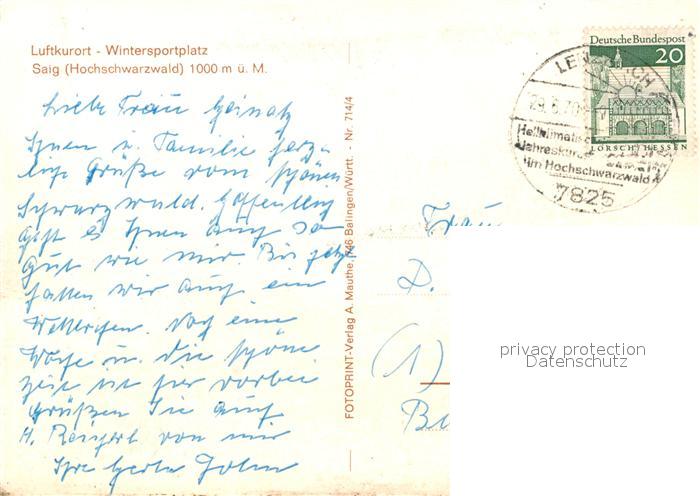 Luftkurort - Wintersportplatz
Saig (Hochschwarzwald) 1000 m ü. M.
Liebe Frau
Ihnen u. Familie herz-
liche Grüße vom schönen
Schwarzwald. Hoffentlich
geht es Ihnen auch so
gut wie mir. Bis jetzt
hatten wir auch ein
Noch eine
Woche u. die schöne
Zeit ist hier vorbei
Grüßen Sie auch
H. von mir
Ihre
FOTOPRINT-Verlag A. Mauthe, 746 Balingen/Württ. - Nr. 714/4
Deutsche Bundespost
20
LORSCH/HESSEN
Heilklimatischer
Jahreskurort
im Hochschwarzwald
7825
Frau
D.
(1)
privacy protection
Datenschutz